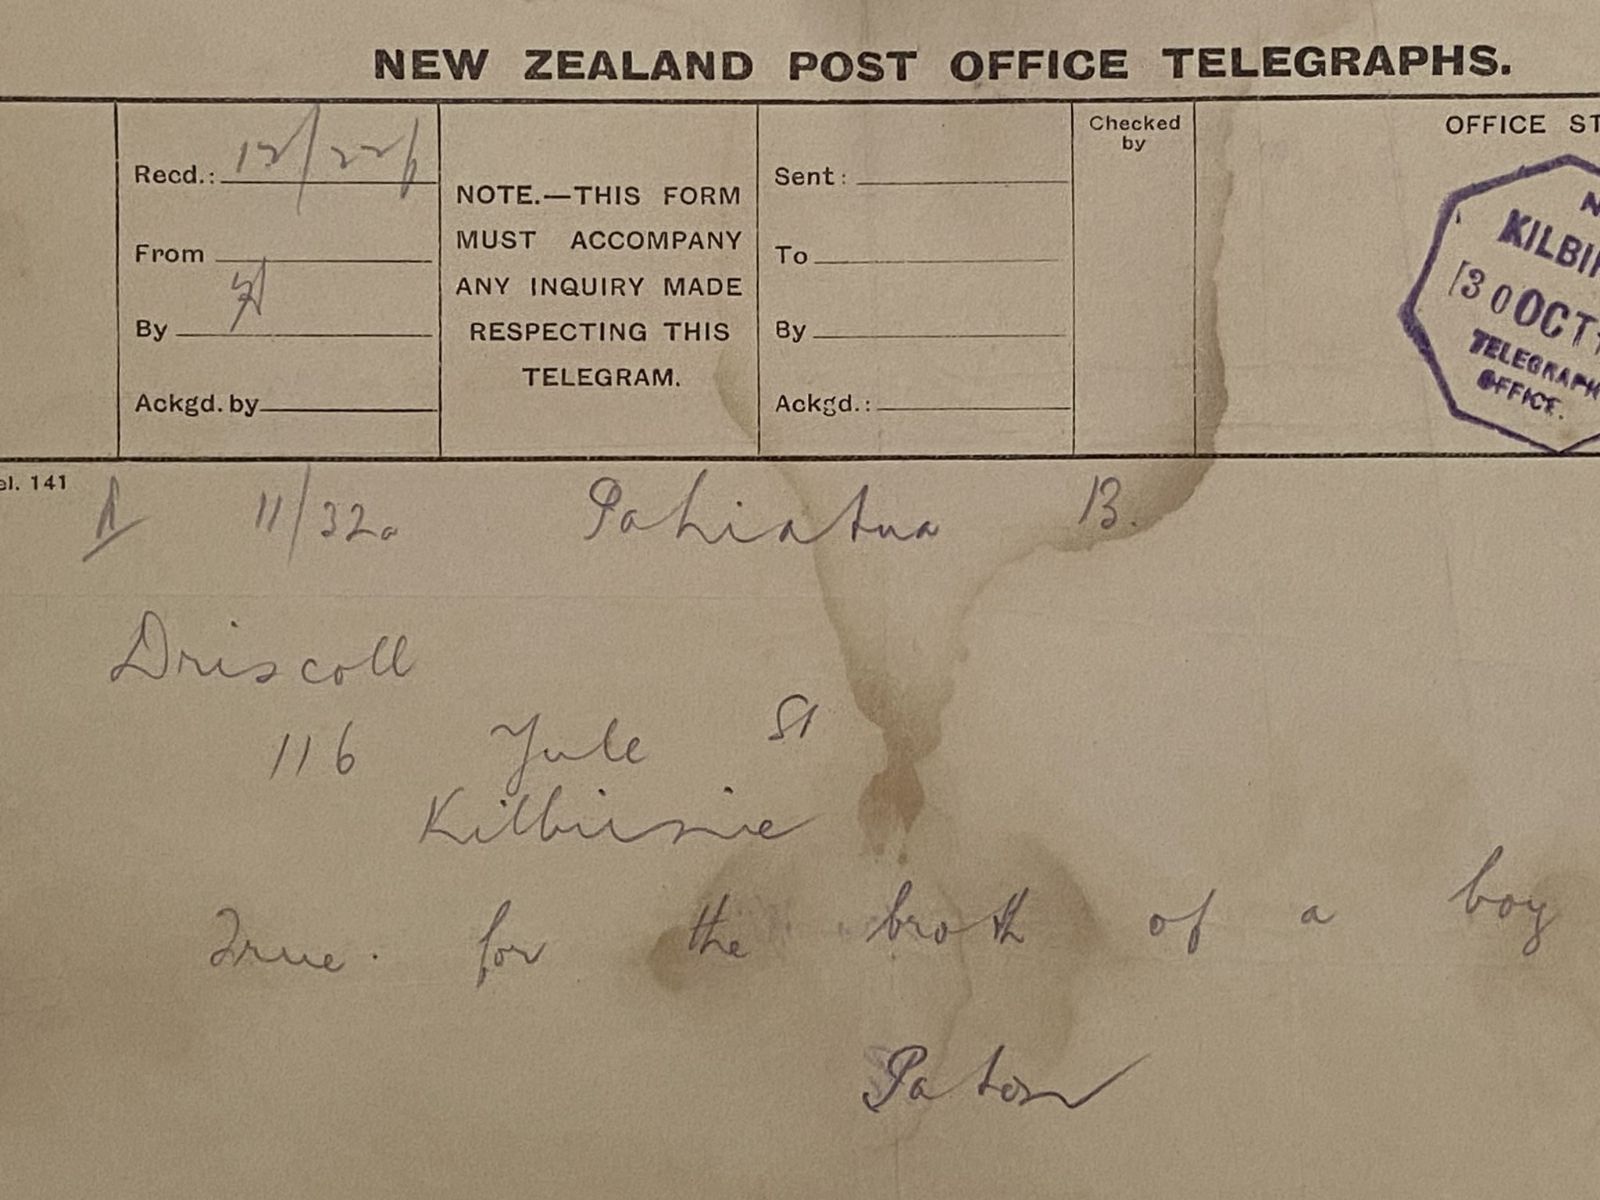 NEW ZEALAND POST OFFICE TELEGRAPHS.
Recd.: 12/22p
From
By
Ackgd. by
NOTE.—THIS FORM
MUST ACCOMPANY
ANY INQUIRY MADE
RESPECTING THIS
TELEGRAM.
Sent:
To
By
Ackgd.:
Checked
by
OFFICE ST
KILBIR
30 OCT
TELEGRAPH
OFFICE.
el. 141
11/32a Pahiatua B.
Driscoll
116 Yule St
Kilbirnie
True for the broth of a boy
Paton